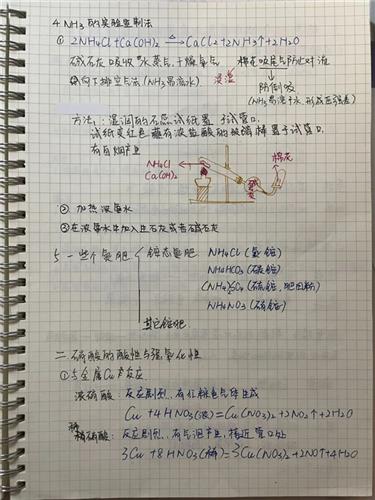 4 NH₃的实验室制法
① 2NH₄Cl+Ca(OH)₂ △ CaCl₂+2NH₃↑+2H₂O
碱石灰吸收 水蒸气,干燥氨气 棉花吸尾气防止对流
向下排空气法(NH₃易溶水) 浸湿
防倒吸
(NH₃易溶于水,形成压强差)
方法:湿润的石蕊试纸置于试管口,
试纸变红色 蘸有浓盐酸的玻璃棒置于试管口,
有白烟产生
NH₄Cl
Ca(OH)₂
棉花
② 加热浓氨水
③在浓氨水中加入生石灰或者碱石灰
5 一些个氮肥
铵态氮肥
NH₄Cl(氯铵)
NH₄HCO₃(碳铵)
(NH₄)₂SO₄(硫铵,肥田粉)
NH₄NO₃(硝铵)
其它铵肥
二 硝酸的酸性与强氧化性
①与金属Cu反应
浓硝酸:反应剧烈,有红棕色气体生成
Cu+4HNO₃(浓)=Cu(NO₃)₂+2NO₂↑+2H₂O
稀
稀硝酸:反应剧烈,有气泡产生,接近管口处
3Cu+8HNO₃(稀)=3Cu(NO₃)₂+2NO↑+4H₂O